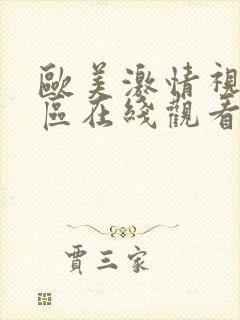 歐美激情視
區在綫觀看
賈三家